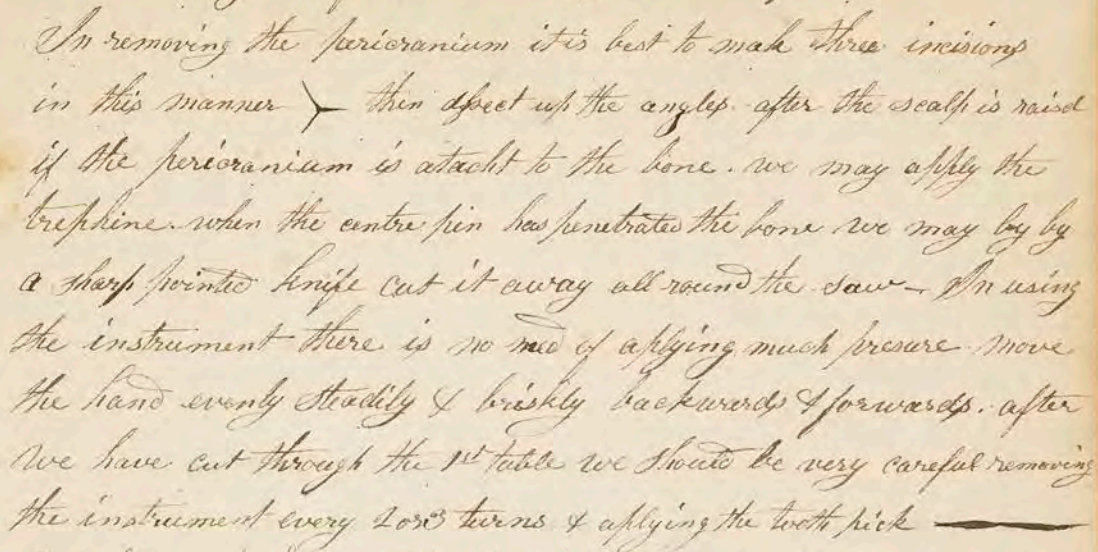 In removing the pericranium it is best to mak three incisions
in this manner then dissect up the angles. after the scalp is raisd
if the pericranium is atacht to the bone. we may apply the
trephine. when the centre pin has penetrated the bone we may by by
a sharp pointed knife cut it away all round the saw - In using
the instrument there is no need of aplying much presure move
the hand evenly steadily & briskly backwards & forwards. after
we have cut through the 1st table we should be very careful removing
the instrument every 2 or 3 turns & aplying the tooth pick